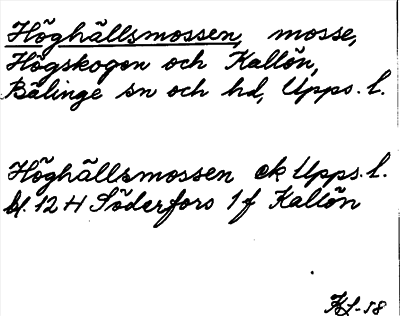 Höghällsmossen, mosse,
Högskogen och Kallön,
Bälinge sn och hd, Upps. l.
Höghällsmossen ek Upps. l.
bl. 12 H Söderfors 1 f Kallön